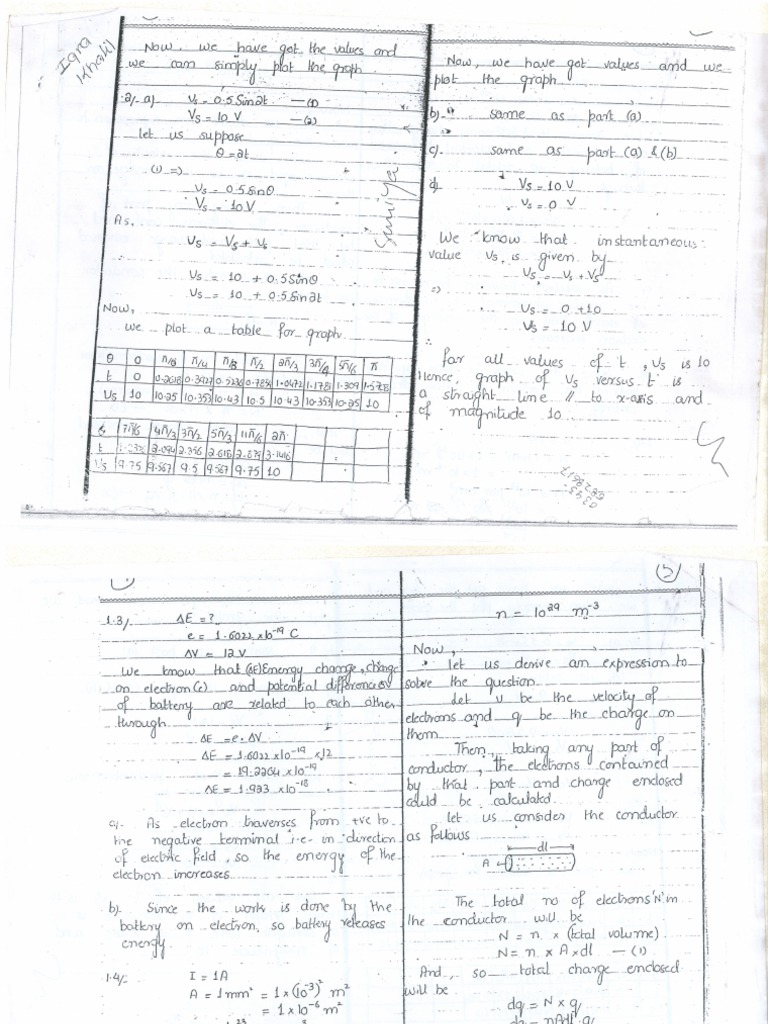 Iqra
Khalil
Now, we have got the values and
we can simply plot the graph.
2/- a) Vs = 0.5 Sin2t —(1)
Vs = 10 V —(2)
let us suppose
θ = 2t
(1) =>
Vs = 0.5 sinθ
Vs = 10V
As,
Vs = Vs + Vs
Vs = 10 + 0.5 Sinθ
Vs = 10 + 0.5 Sin2t
Now,
we plot a table for graph.
θ 0 π/6 π/4 π/3 π/2 2π/3 3π/4 5π/6 π
t 0 0.2618 0.3927 0.5236 0.7854 1.0472 1.1781 1.309 1.5708
Vs 10 10.25 10.353 10.43 10.5 10.43 10.353 10.25 10
θ 7π/6 4π/3 3π/2 5π/3 11π/6 2π
t 2.094 2.356 2.618 2.879 3.1416
Vs 9.75 9.567 9.5 9.567 9.75 10
Now, we have got values and we
plot the graph
b)- same as part (a)
c). same as part (a) & (b)
d) Vs = 10 V
Vs = 0 V
We know that instantaneous
value Vs is given by
Vs = Vs + Vs
=>
Vs = 0 + 10
Vs = 10 V
∴
for all values of t, Vs is 10
Hence, graph of Vs versus 't' is
a straight line // to x-axis and
of magnitude 10
1.3/- ΔE = ?
e = 1.6022 x 10⁻¹⁹ C
ΔV = 12 V
We know that (ΔE) Energy change, charge
on electron (e) and potential difference ΔV
of battery are related to each other
through
ΔE = e. ΔV
ΔE = 1.6022 x 10⁻¹⁹ x 12
= 19.2264 x 10⁻¹⁹
ΔE = 1.923 x 10⁻¹⁸
a)- As electron traverses from +ve to
the negative terminal i.e. in direction
of electric field, so the energy of the
electron increases.
b). Since the work is done by the
battery on electron, so battery releases
energy.
1.4/- I = 1A
A = 1 mm² = 1 x (10⁻³)² m²
= 1 x 10⁻⁶ m²
(5)
n = 10²⁹ m⁻³
Now,
let us derive an expression to
solve the question.
Let v be the velocity of
electrons and q be the charge on
them.
Then, taking any part of
conductor, the electrons contained
by that part and charge enclosed
could be calculated.
let us consider the conductor
as follows
dl
A
The total no of electrons 'N' in
the conductor will be
N = n x (total volume)
N = n x A x dl —(1)
And, so total charge enclosed
will be
dq = N x q
dq = nAdl.q